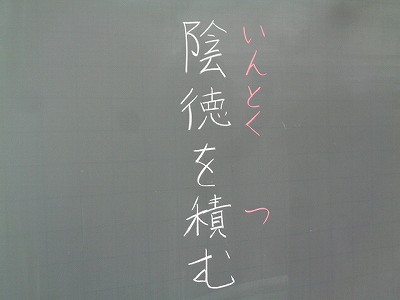 陰徳を積む
いんとく つ